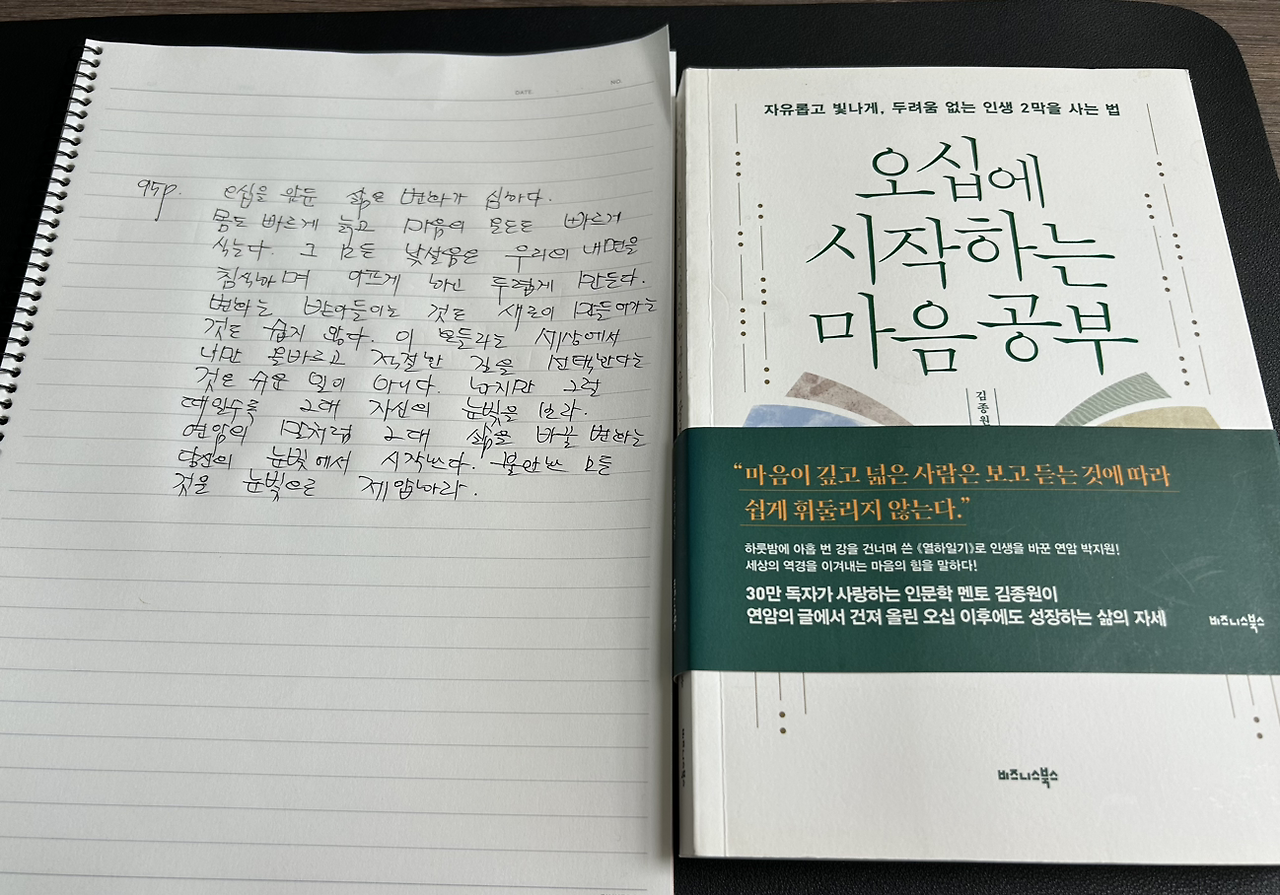 DATE.
NO.
95p.
오십을 앞둔 삶은 변화가 심하다.
몸도 빠르게 늙고 마음의 온도도 빠르게
식는다. 그 모든 낯설음은 우리의 내면을
침식하며 아프게 하고 두렵게 만든다.
변화는 받아들이는 것도 새로이 만들어가는
것도 쉽지 않다. 이 흔들리는 세상에서
나만 올바르고 적절한 길을 선택한다는
것은 쉬운 일이 아니다. 하지만 그럴
때일수록 그대 자신의 눈빛을 보라.
연암의 말처럼 그대 삶을 바꿀 변화는
당신의 눈빛에서 시작한다. 불안한 모든
것을 눈빛으로 제압하라.
자유롭고 빛나게, 두려움 없는 인생 2막을 사는 법
오십에
시작하는
마음공부
김종원
“마음이 깊고 넓은 사람은 보고 듣는 것에 따라
쉽게 휘둘리지 않는다.”
하룻밤에 아홉 번 강을 건너며 쓴 《열하일기》로 인생을 바꾼 연암 박지원!
세상의 역경을 이겨내는 마음의 힘을 말하다!
30만 독자가 사랑하는 인문학 멘토 김종원이
연암의 글에서 건져 올린 오십 이후에도 성장하는 삶의 자세
비즈니스북스
비즈니스북스